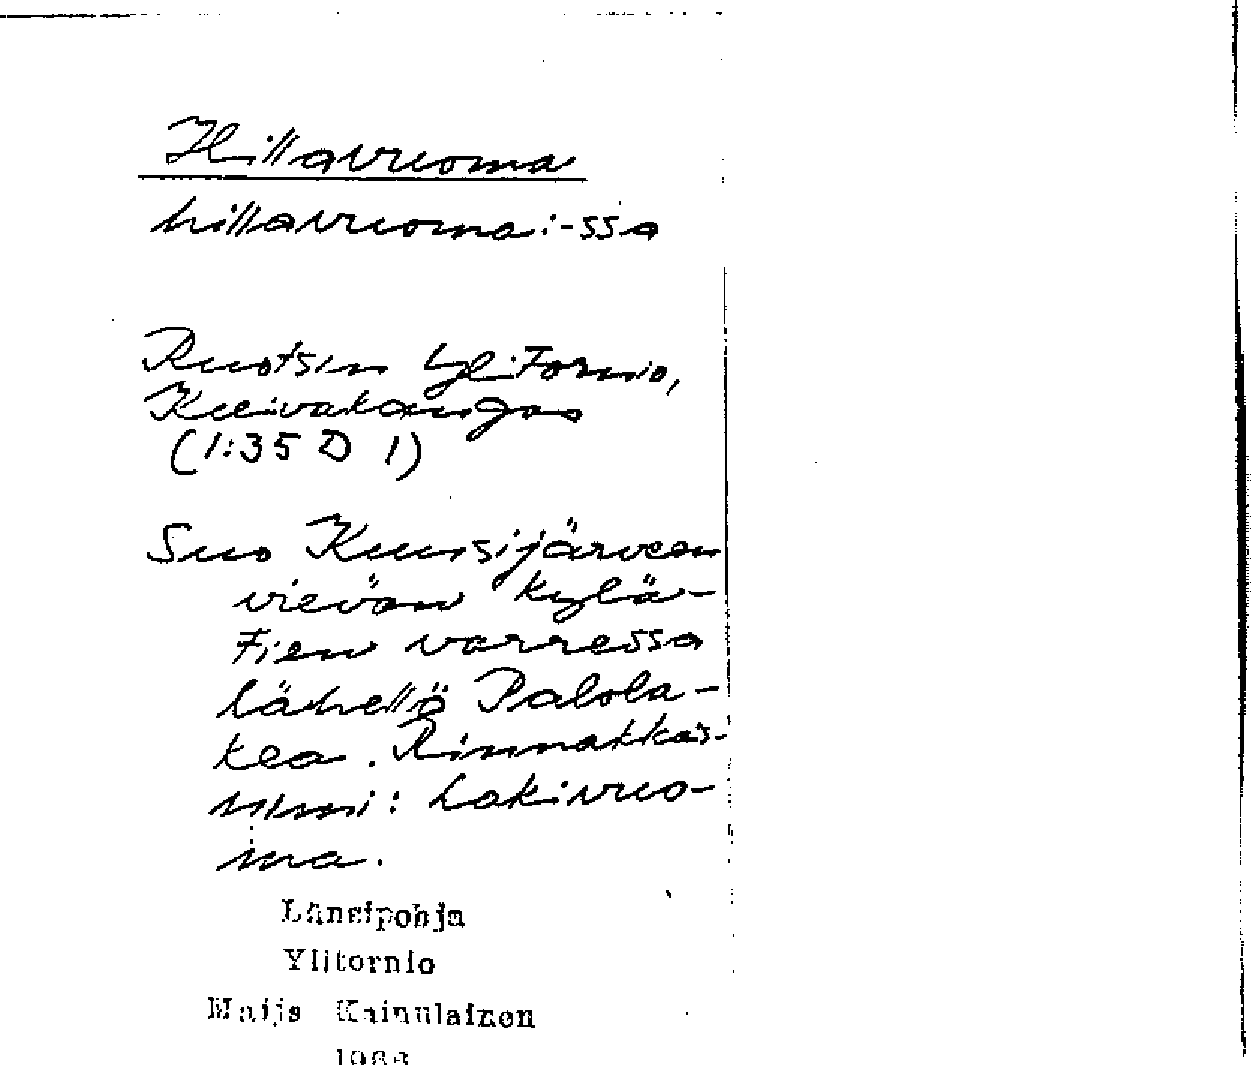 Hillavuoma
hillavuoma:-ssa
Ruotsin Ylitornio,
Kuivakangas
(1:35 D 1)
Suo Kuusijärveen
vievän kylä-
tien varressa
lähellä Palola-
kea. Rinnakkais-
nimi: Lakivuo-
ma.
Länsipohja
Ylitornio
Maija Kainulainen